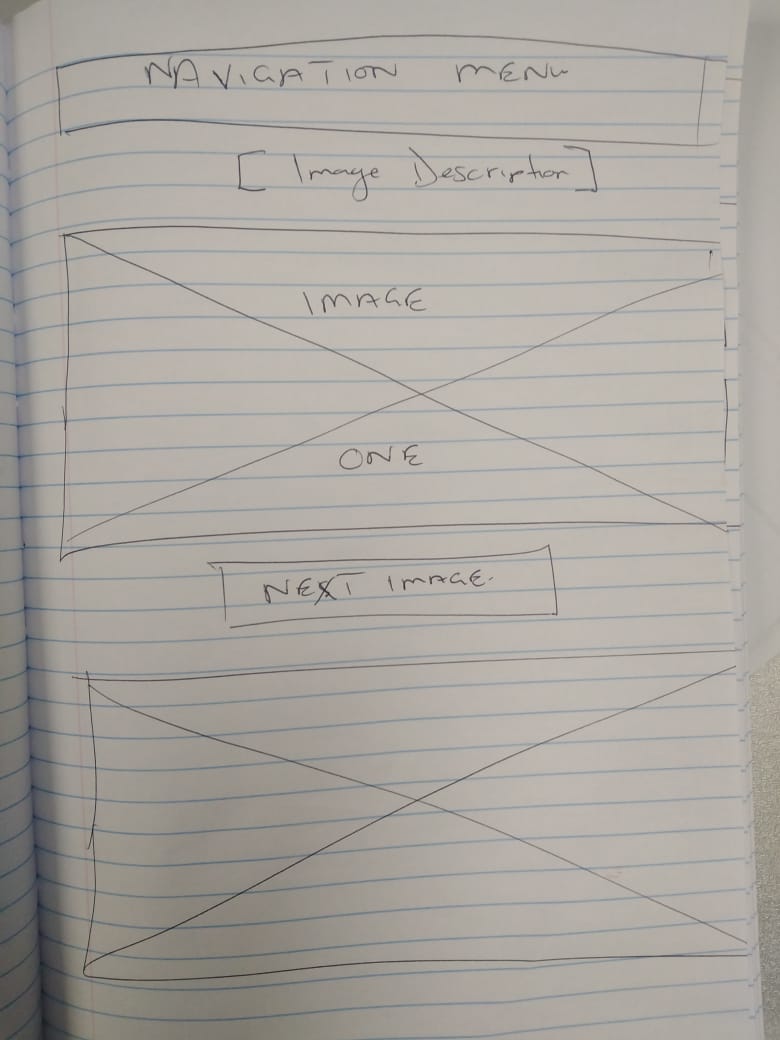 NAVIGATION MENU
[Image Description]
IMAGE
ONE
NEXT IMAGE.